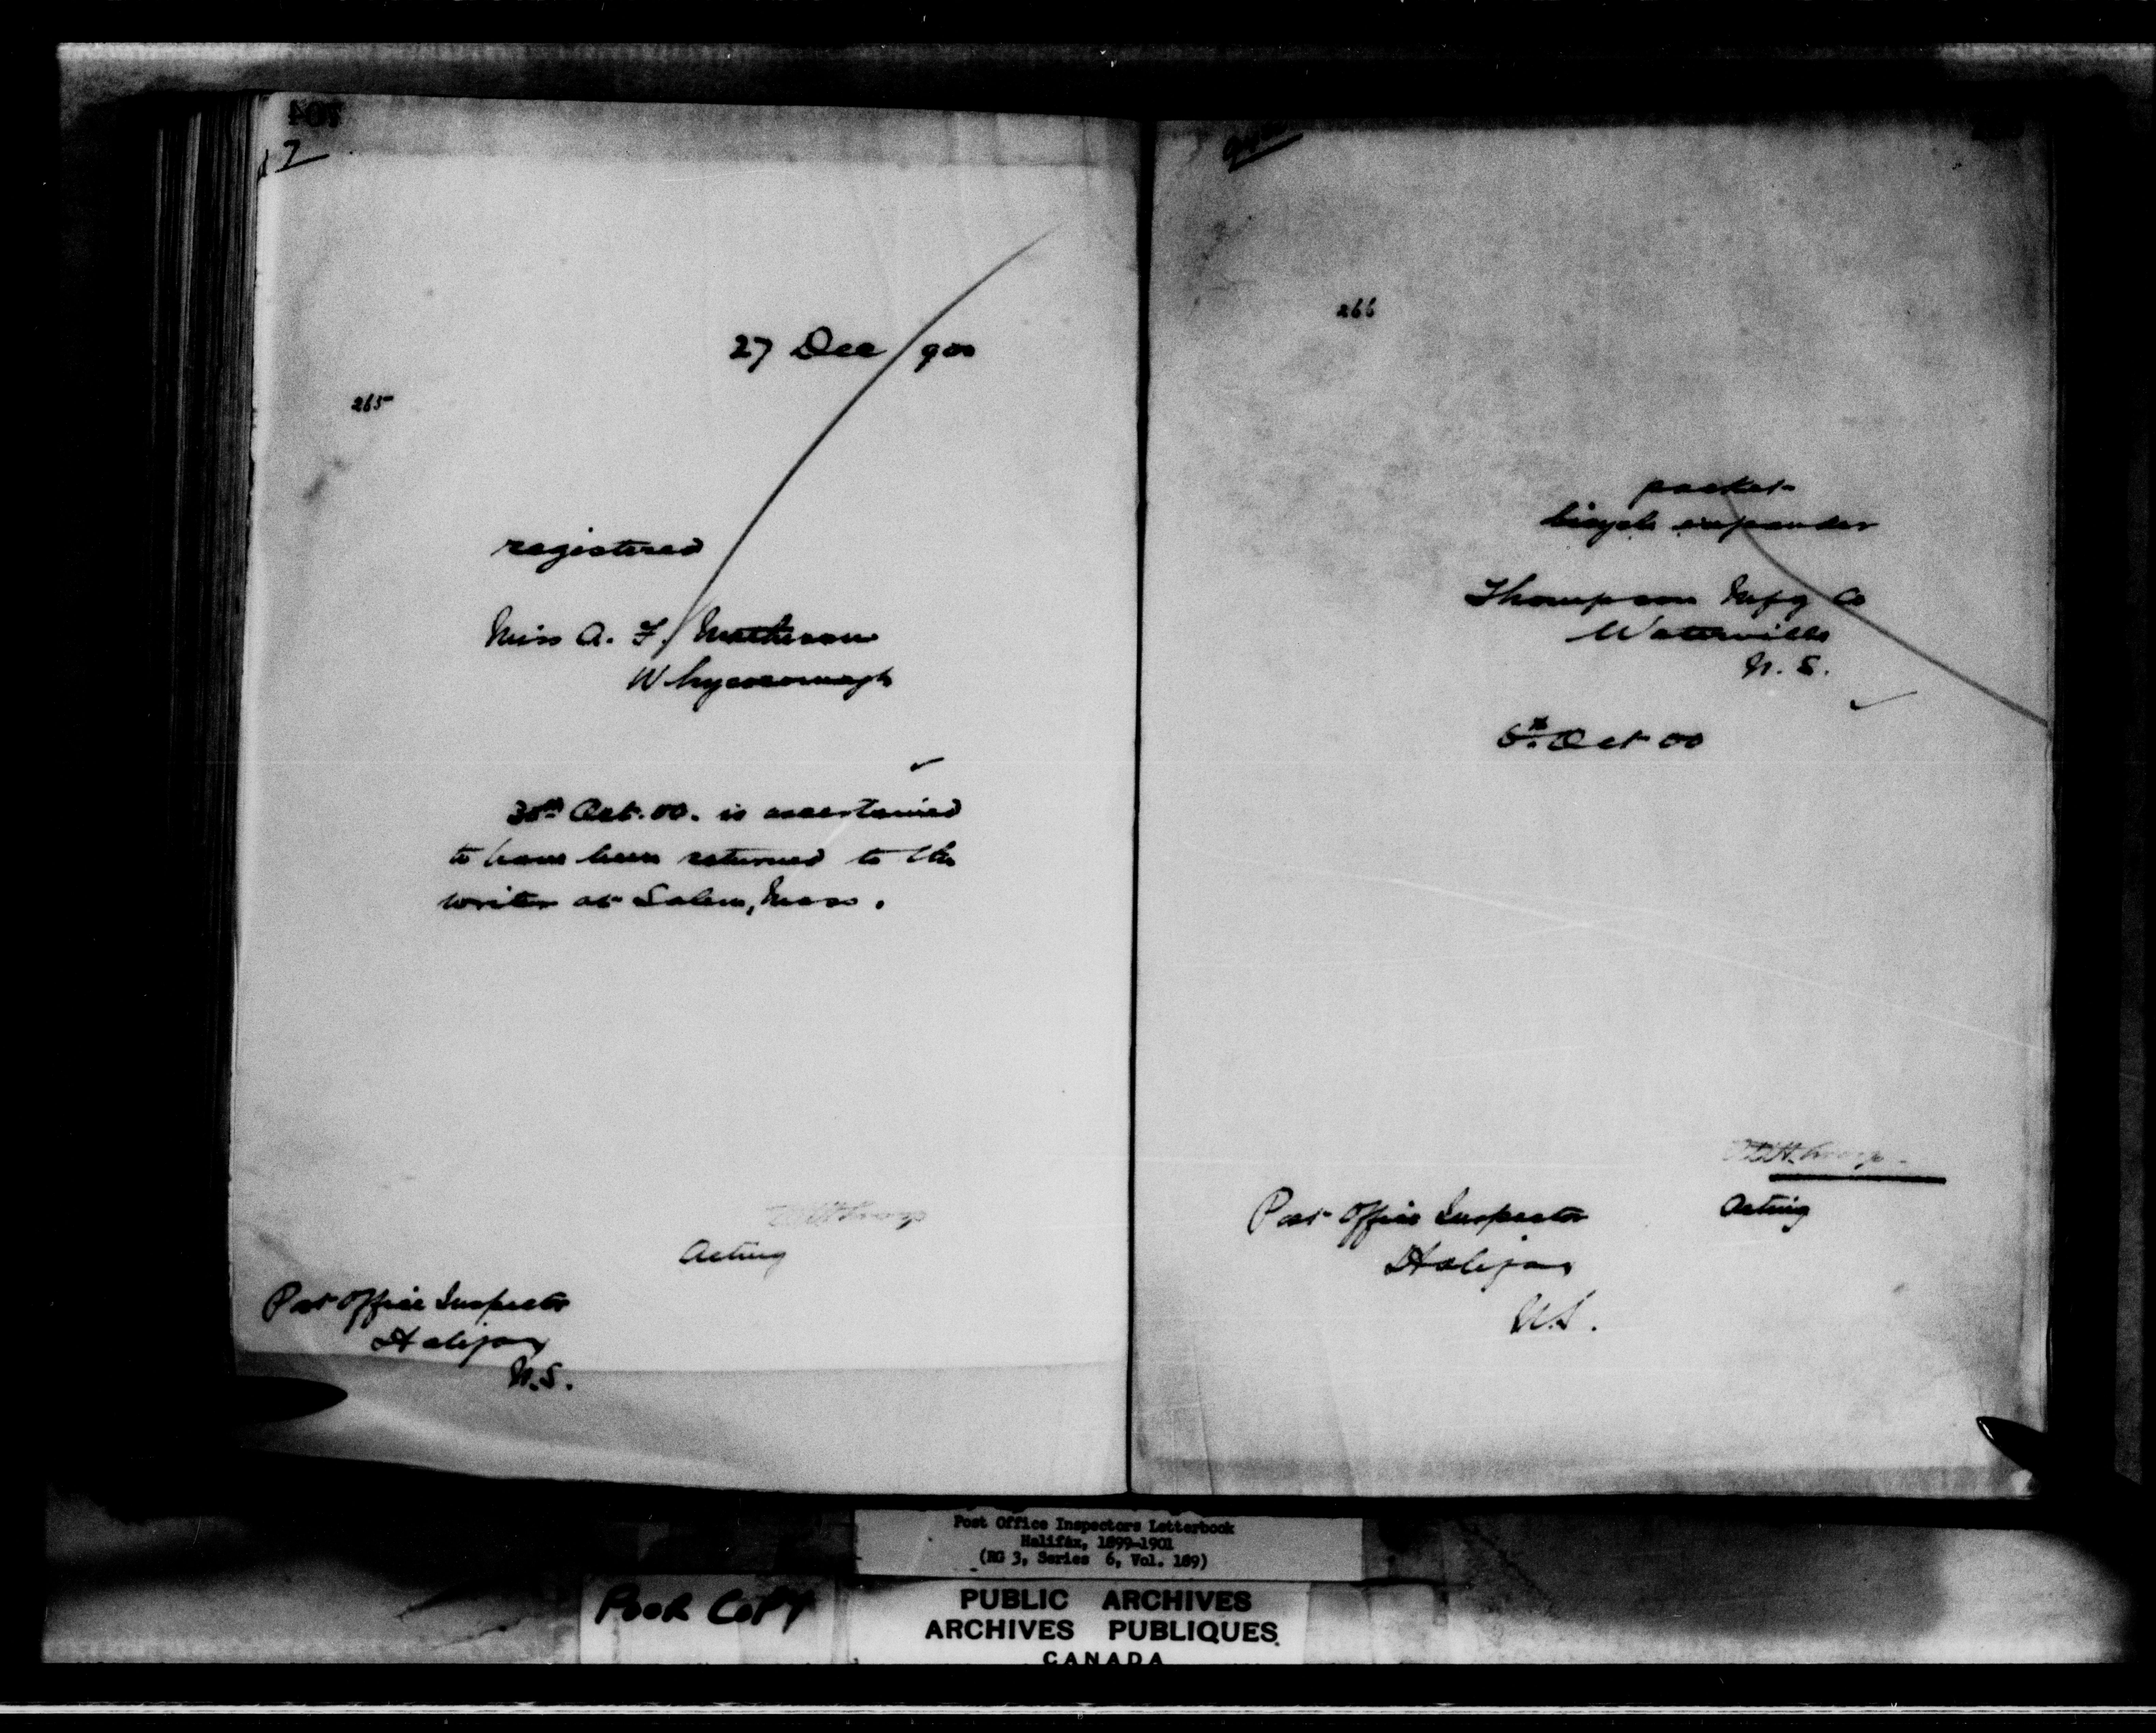 27 Dec/900
265
registered
Miss A. F. Matheson
Whycocomagh
30th Oct. 00. is ascertained
to have been returned to the
writer at Salem, Mass.
Acting
Post Office Inspector
Halifax
N.S.
266
packet
bicycle expander
Thompson Mfg Co
Waterville
N.S.
Oct 00
Post Office Inspector
Acting
Halifax
N.S.
Post Office Inspectors Letterbook
Halifax, 1899-1901
(RG 3, Series 6, Vol. 189)
POOR COPY
PUBLIC ARCHIVES
ARCHIVES PUBLIQUES
CANADA